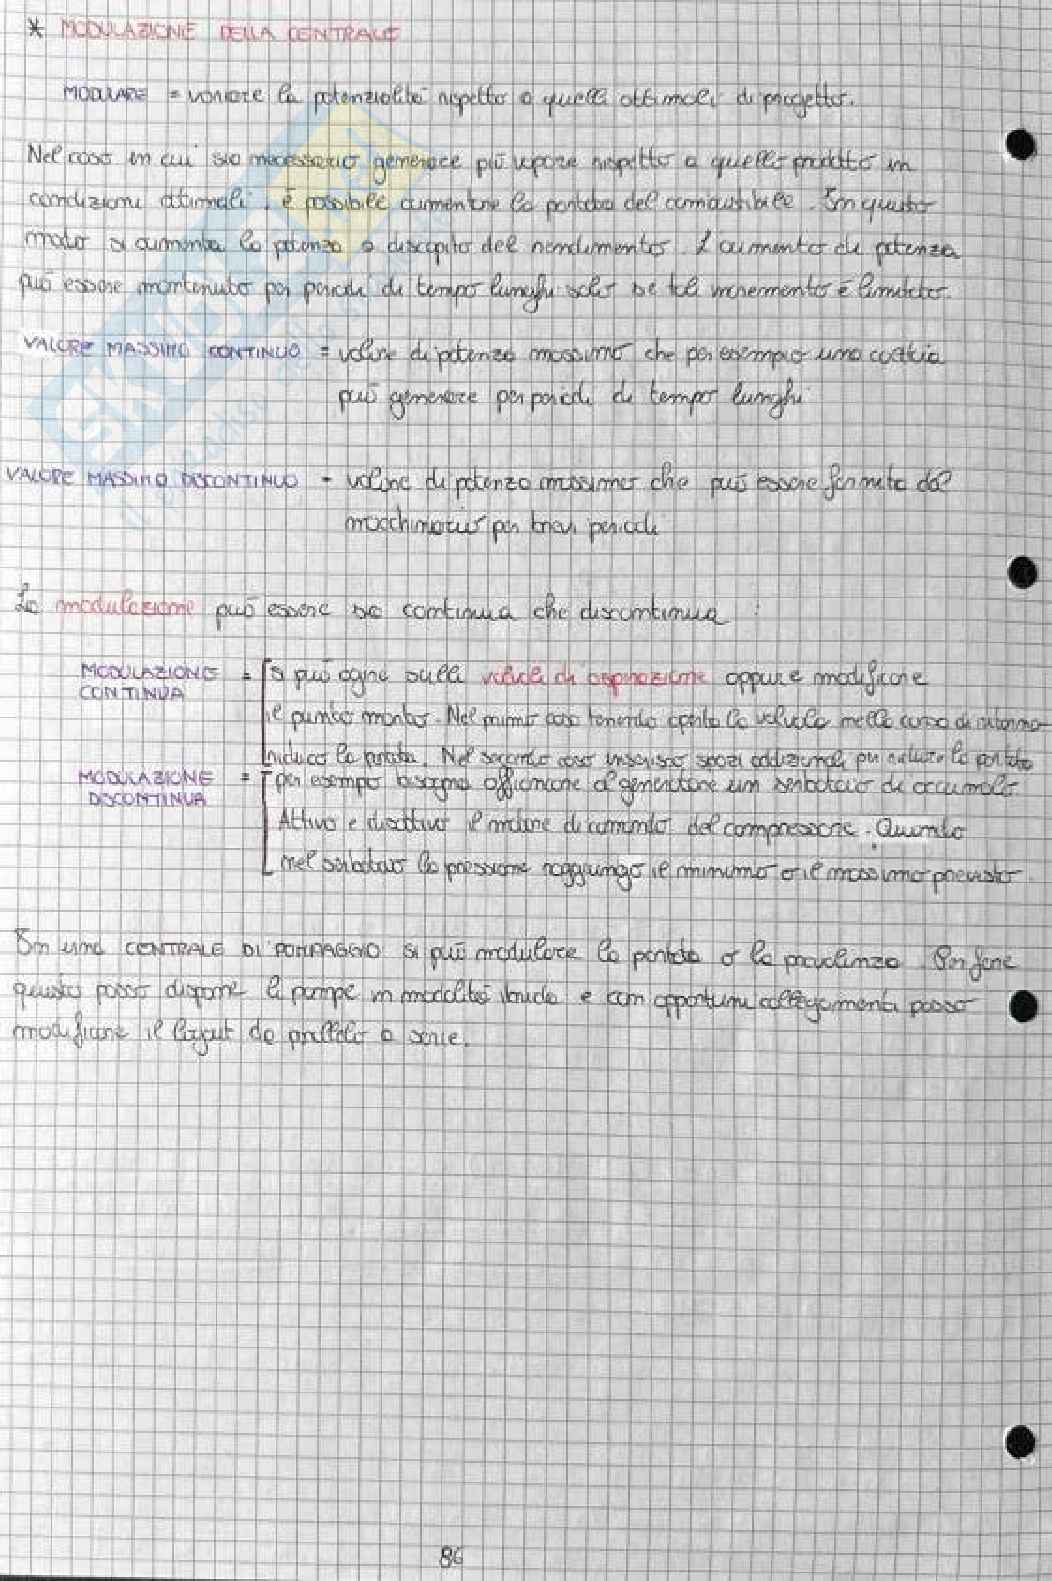 * MODULAZIONE DELLA CENTRALE
MODULARE = variare la potenzialità rispetto a quella ottimale di progetto.
Nel caso in cui sia necessario generare più vapore rispetto a quello prodotto in
condizioni ottimali, è possibile aumentare la portata del combustibile. In questo
modo si aumenta la potenza a discapito del rendimento. L'aumento di potenza
può essere mantenuto per periodi di tempo lunghi solo se tale incremento è limitato.
VALORE MASSIMO CONTINUO = valore di potenza massimo che per esempio una caldaia
può generare per periodi di tempo lunghi
VALORE MASSIMO DISCONTINUO = valore di potenza massimo che può essere fornito dal
macchinario per brevi periodi
La modulazione può essere sia continua che discontinua :
MODULAZIONE CONTINUA = si può agire sulla valvola di aspirazione oppure modificare
il punto morto. Nel primo caso tenendo aperta la valvola nella corsa di ritorno
riduco la portata. Nel secondo caso inserisco spazi addizionali per ridurre la portata
MODULAZIONE DISCONTINUA = per esempio bisogna affiancare al generatore un serbatoio di accumulo
Attivo e disattivo il motore del compressore. Quando
nel serbatoio la pressione raggiunge il minimo o il massimo previsto.
In una CENTRALE DI POMPAGGIO si può modulare la portata o la prevalenza. Per fare
questo posso disporre le pompe in modalità e con opportuni collegamenti posso
modificare il layout da parallelo a serie.
86